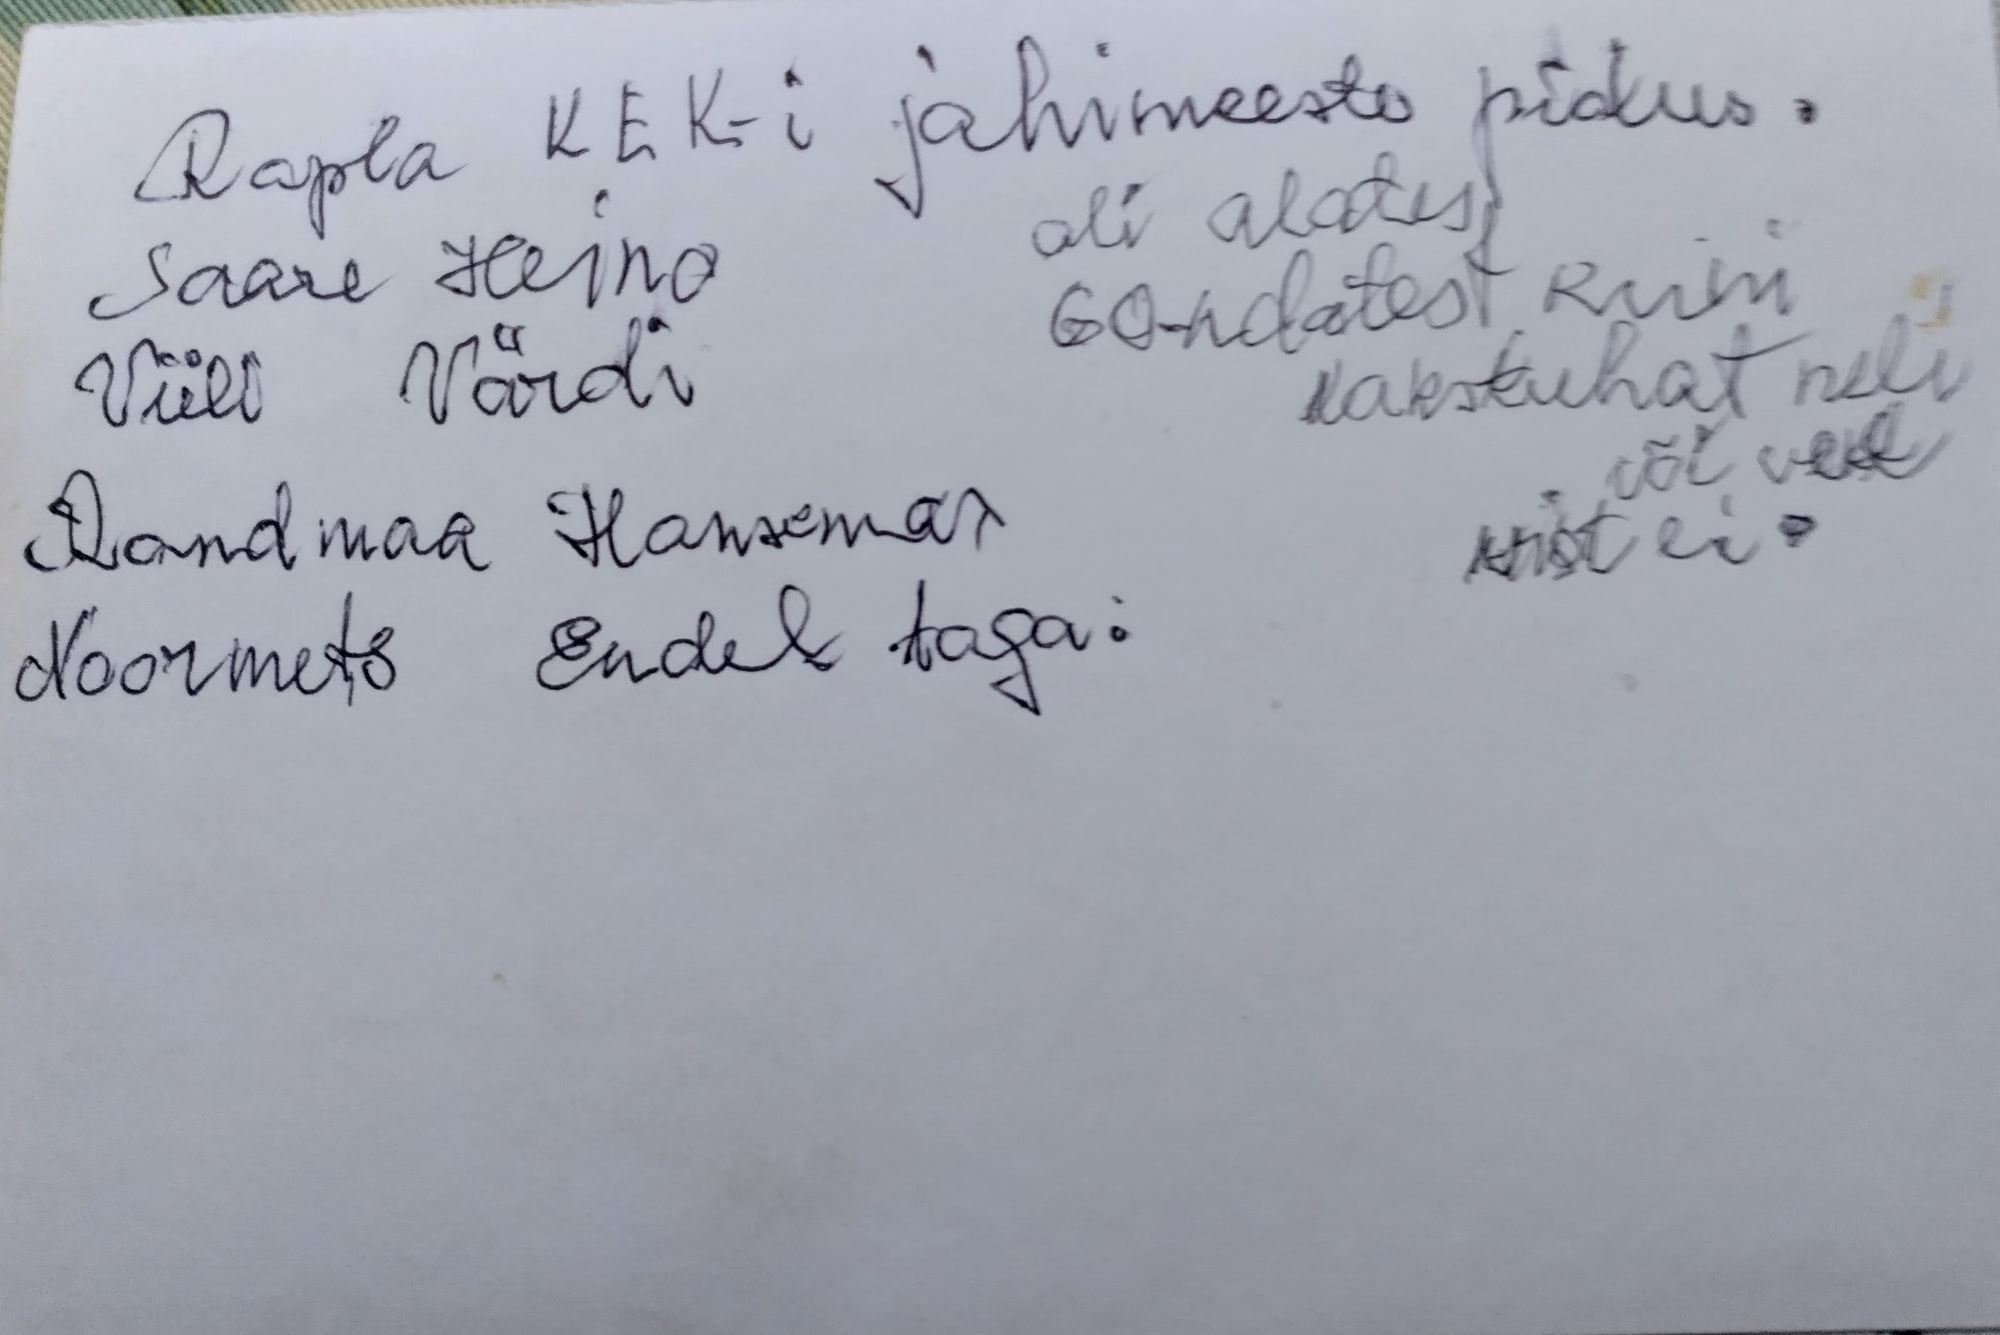 Rapla KEK-i jahimeeste pidus.
Saare Heino
Viili Värdi
Randmaa Hansemar
Noormets Endel taga:
oli alates
60-ndatest kuni
kakstuhat neli
või veel
ei